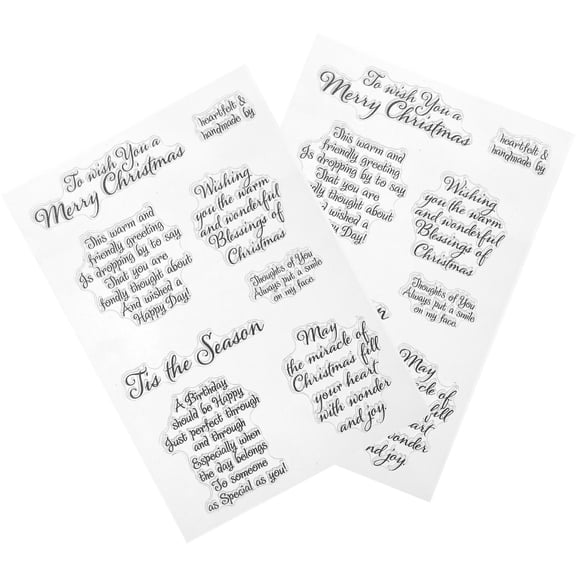 To wish You a
Merry Christmas
heartfelt &
handmade by
This warm and
friendly greeting
Is dropping by to say
That you are
fondly thought about
And wished a
Happy Day!
Wishing
you the warm
and wonderful
Blessings of
Christmas
Thoughts of You
Always put a smile
on my face.
'Tis the Season
May
the miracle of
Christmas fill
your heart
with wonder
and joy.
A Birthday
should be Happy
Just perfect through
and through
Especially when
the day belongs
To someone
as Special as you!
To wish You a
Merry Christmas
heartfelt &
handmade by
This warm and
friendly greeting
Is dropping by to say
That you are
fondly thought about
d wished a
Day!
Wishing
you the warm
and wonderful
Blessings of
Christmas
Thoughts of You
Always put a smile
on my face.
on
May
cle of
fill
art
onder
and joy.